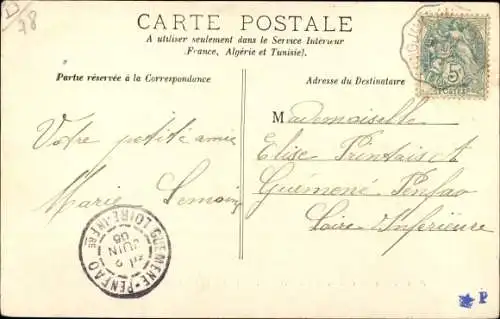 78
CARTE POSTALE
A utiliser seulement dans le Service Intérieur
(France, Algérie et Tunisie).
Partie réservée à la Correspondance
Adresse du Destinataire
5
POSTES
Votre petite amie
Marie
Mademoiselle
Elise
Guémené Penfao
Loire Inférieure
GUEMENE-PENFAO LOIRE-INFRE
2
JUIN
P